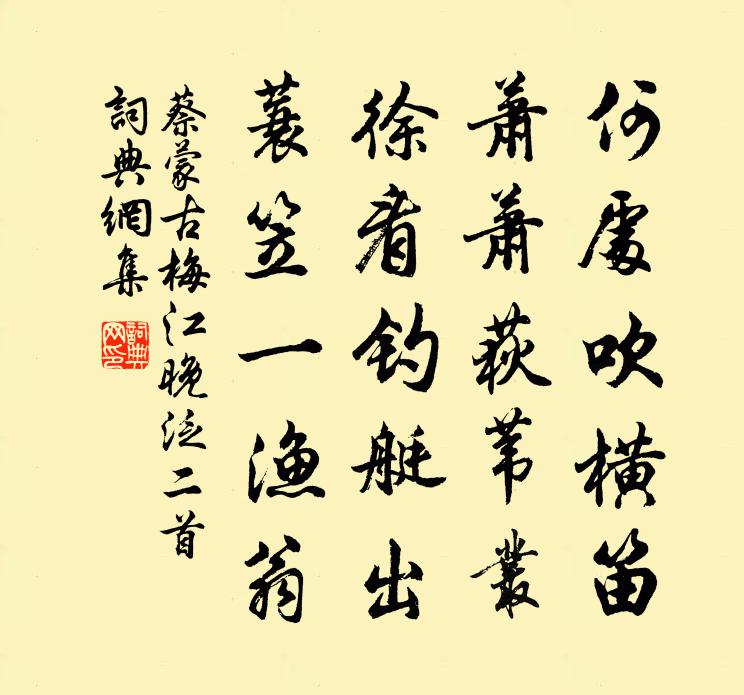 何處吹橫笛
蕭蕭荻葦叢
徐看釣艇出
蓑笠一漁翁
蔡蒙古梅江晚泛二首
詞典網集
詞典網印